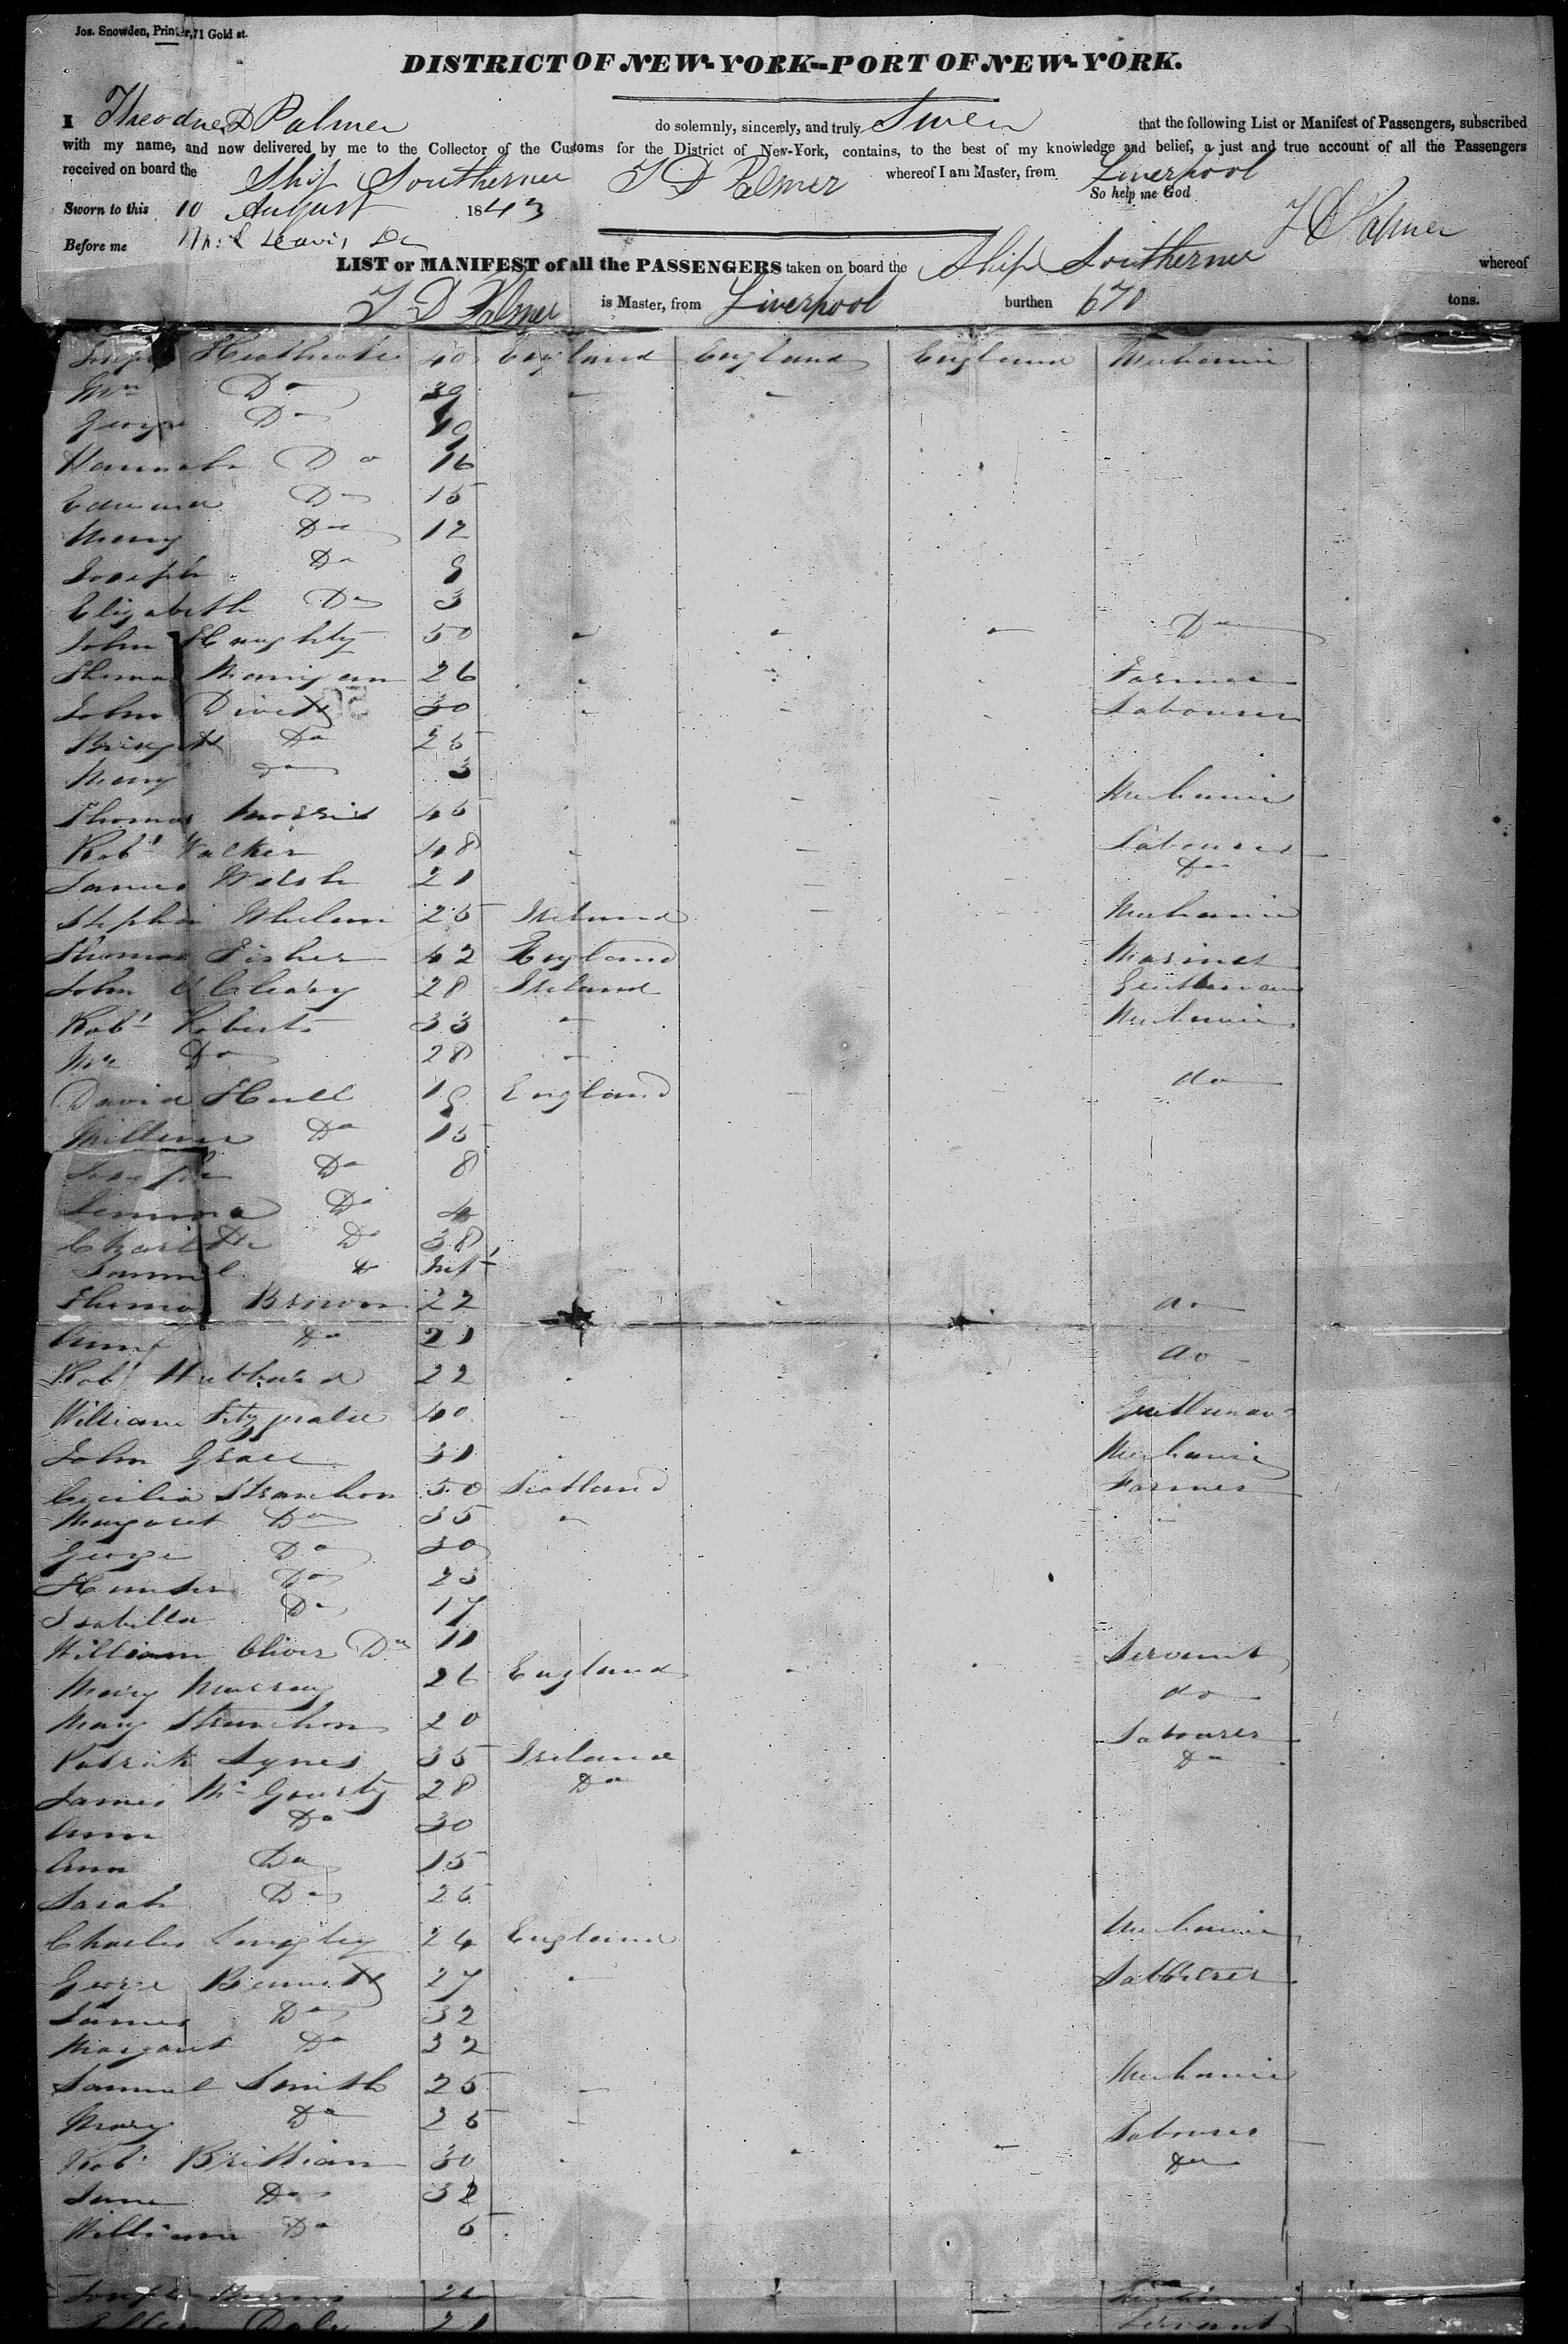 Jos. Snowden, Printer, 71 Gold st.
DISTRICT OF NEW-YORK--PORT OF NEW-YORK.
I Theodore D Palmer do solemnly, sincerely, and truly Swear that the following List or Manifest of Passengers, subscribed
with my name, and now delivered by me to the Collector of the Customs for the District of New-York, contains, to the best of my knowledge and belief, a just and true account of all the Passengers
received on board the Ship Southerner T D Palmer whereof I am Master, from Liverpool
So help me God
Sworn to this 10 August 1843 T D Palmer
Before me
LIST or MANIFEST of all the PASSENGERS taken on board the Ship Southerner whereof
T D Palmer is Master, from Liverpool burthen 670 tons.
Joseph 40 England England England Mechanic
Mrs Do 39
George Do
Hannah Do 16
Edward Do 15
Mary Do 12
Joseph Do 9
Elizabeth Do 3
John Haughty 50 Do
Thomas Manigan 26 Farmer
John Divett 30 Labourer
Bridget Do 25
Mary Do 3
Thomas Morris 45 Mechanic
Robt Walker 48 Labourer
James Welsh 21 Do
Stephen Whelan 25 Ireland Mechanic
Thomas Fisher 42 England Mariner
John O'Cleary 28 Ireland Gentleman
Robt Roberts 33 Mechanic
Mrs Do 28
David Hull 19 England do
William Do 15
Joseph Do 8
Do 4
Charlotte Do 38
Samuel Do Inft
Thomas Brown 22 do
Ann Do 21
Robt Hubbard 22 do
William Fitzgerald 40 Gentleman
John Grace 31 Mechanic
Cecilia Strawhon 50 Scotland Farmer
Margaret Do 35
George Do 30
Hunter Do 23
Isabella Do 17
William Oliver Do 11
Mary Murray 26 England Servant
Mary Strawhon 20 do
Patrick Lynes 35 Ireland Labourer
James Mc Gourty 28 Do Do
Ann Do 30
Ann Do 15
Sarah Do 25
Charles Langley 24 England Mechanic
George Bennett 27 Labourer
James Do 32
Margaret Do 32
Samuel Smith 25 Mechanic
Mary Do 25
Robt Brittian 30 Labourer
Jane Do 32 Do
William Do 5
Joseph 26
Dale 21 Servant